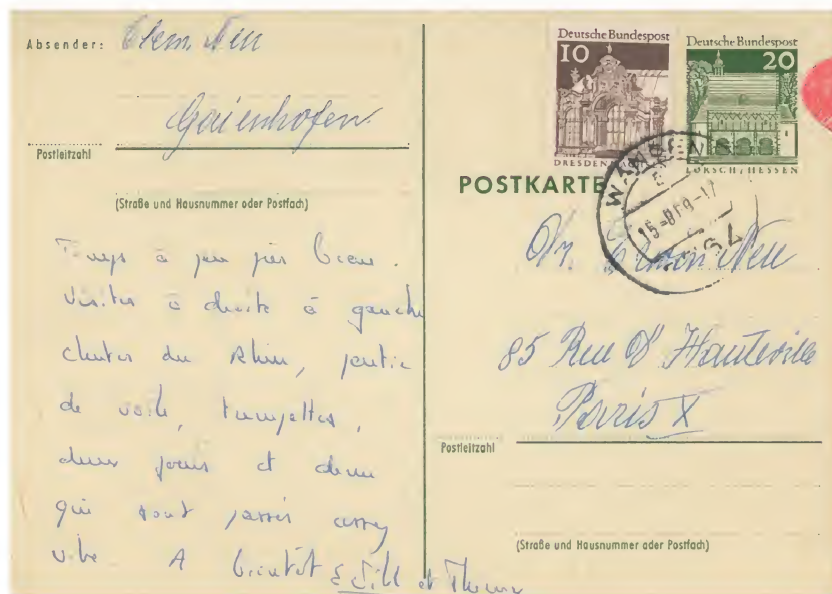 Absender: Clem. Neu
Gaienhofen
Postleitzahl
(Straße und Hausnummer oder Postfach)
Temps à peu près beau.
Visites à droite à gauche
chutes du Rhin, partie
de voile, trempettes,
deux jours et demi
qui sont passés assez
vite. A bientôt et
Deutsche Bundespost
10
DRESDEN
Deutsche Bundespost
20
LORSCH/HESSEN
POSTKARTE
WANGEN
Neu
85 Rue d'Hauteville
Paris X
Postleitzahl
(Straße und Hausnummer oder Postfach)